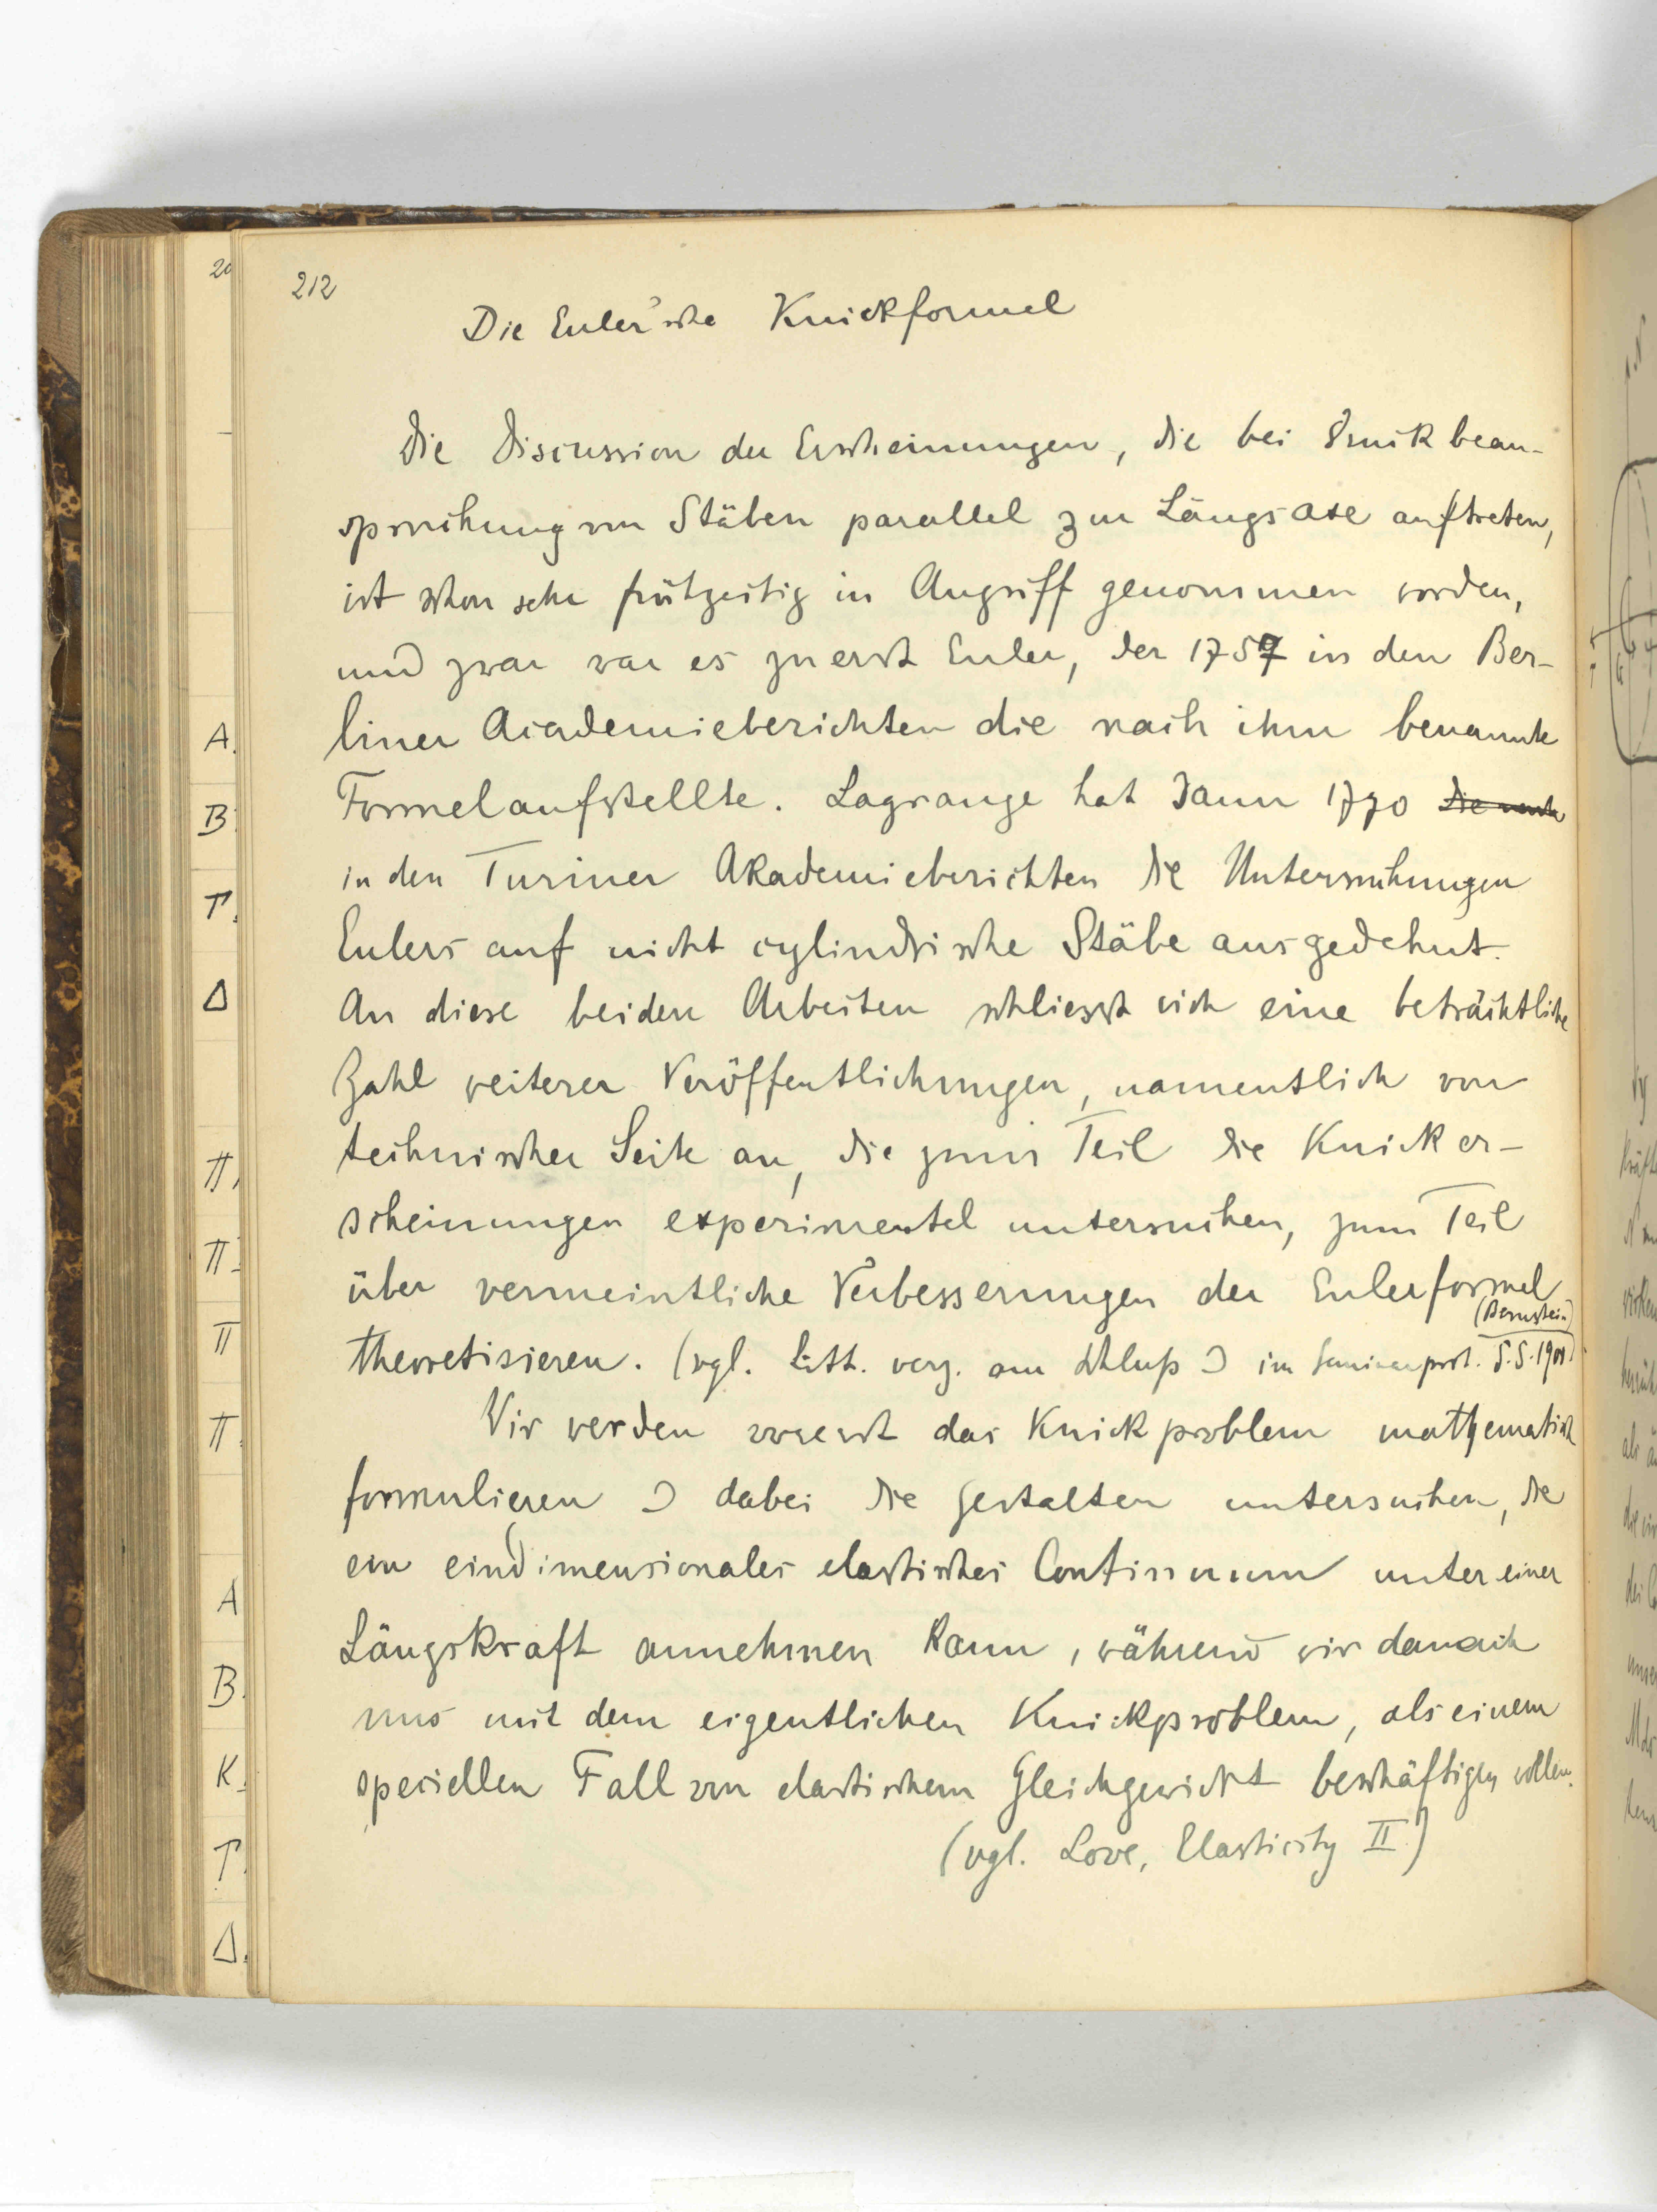 212
Die Euler'sche Knickformel
Die Discussion der Erscheinungen, die bei Druckbean-
spruchung von Stäben parallel zur Längsaxe auftreten,
ist schon sehr frühzeitig in Angriff genommen worden,
und zwar war es zuerst Euler, der 1757 in den Ber-
liner Academieberichten die nach ihm benannte
Formel aufstellte. Lagrange hat dann 1770
in den Turiner Akademieberichten die Untersuchungen
Eulers auf nicht cylindrische Stäbe ausgedehnt.
An diese beiden Arbeiten schliesst sich eine beträchtliche
Zahl weiterer Veröffentlichungen, namentlich von
technischer Seite an, die zum Teil die Knicker-
scheinungen experimentel untersuchen, zum Teil
über vermeintliche Verbesserungen der Eulerformel
(Bernstein)
theoretisieren. (vgl. Litt. verz. am Schluß u im Seminarprot. S.S. 1901)
Wir werden vorerst das Knickproblem mathematisch
formulieren u dabei die Gestalten untersuchen, die
ein eindimensionales elastisches Continuum unter einer
Längskraft annehmen kann, während wir danach
uns mit dem eigentlichen Knickproblem, als einem
speciellen Fall von elastischem Gleichgewicht beschäftigen wollen.
(vgl. Love, Elasticity II)
A.
B.
Γ.
Δ
Π.
Π.
Π
Π.
A
B.
K.
Γ.
Δ.